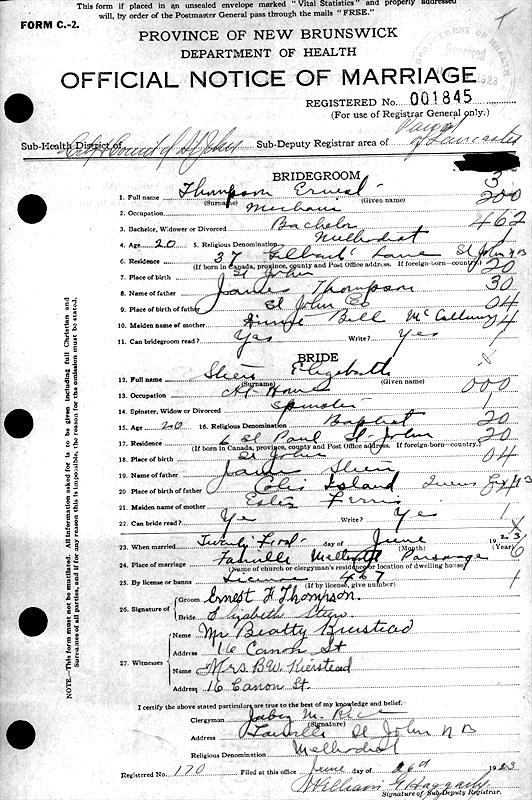 This form if placed in an unsealed envelope marked "Vital Statistics" and properly addressed
will, by order of the Postmaster General pass through the mails "FREE."
FORM C.-2.
PROVINCE OF NEW BRUNSWICK
DEPARTMENT OF HEALTH
OFFICIAL NOTICE OF MARRIAGE
REGISTERED No. 001845
(For use of Registrar General only.)
Sub-Health District of City & County of St John Sub-Deputy Registrar area of Parish of Lancaster
BRIDEGROOM
1. Full name Thompson Ernest
(Surname) (Given name)
2. Occupation Mechanic
3. Bachelor, Widower or Divorced Bachelor 462
4. Age 20 5. Religious Denomination Methodist
6. Residence 37 Gilbert Lane St John N B
(If born in Canada, province, county and Post Office address. If foreign-born—country) 20
7. Place of birth St John
8. Name of father James Thompson 30
9. Place of birth of father St John Co 04
10. Maiden name of mother Bell McCallum 04
11. Can bridegroom read? Yes Write? Yes
BRIDE
12. Full name Elizabeth
(Surname) (Given name)
13. Occupation At Home 000
14. Spinster, Widow or Divorced Spinster
15. Age 20 16. Religious Denomination Baptist 20
17. Residence 6 St Paul St John 20
(If born in Canada, province, county and Post Office address. If foreign-born—country)
18. Place of birth St John 04
19. Name of father James
20. Place of birth of father Island Queens
21. Maiden name of mother Ferris
22. Can bride read? Yes Write? Yes
23. When married Twenty First day of June 1923
(Month) (Year)
24. Place of marriage Fairville Methodist Parsonage
(Name of church or clergyman's residence or location of dwelling house)
25. By license or banns License 467
(If by license, give number)
26. Signature of Groom Ernest F Thompson.
Bride Elizabeth
27. Witnesses Name Mr Beatty Kierstead
Address 16 Canon St
Name Mrs. B.W. Kierstead
Address 16 Canon St.
I certify the above stated particulars are true to the best of my knowledge and belief.
Clergyman M. Rice
(Signature)
Address Fairville St John N B
Religious Denomination Methodist
Registered No. 170 Filed at this office June 26th 1923
William
Signature of Sub-Deputy Registrar.
NOTE.—This form must not be mutilated. All information asked for is to be given including full Christian and
Surnames of all parties, and if for any reason this is impossible, the reason for the omission must be stated.